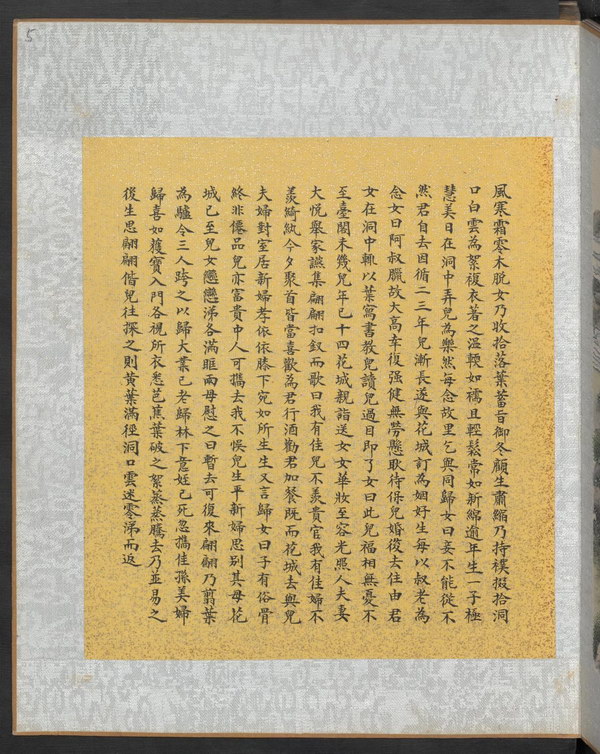 5
風寒霜零木脫女乃收拾落葉蓄旨御冬顧生肅縮乃持襆掇拾洞
口白雲為絮複衣著之溫輭如襦且輕鬆常如新綿逾年生一子極
慧美日在洞中弄兒為樂然每念故里乞與同歸女曰妾不能從不
然君自去因循二三年兒漸長遂與花城訂為姻好生每以叔老為
念女曰阿叔臘故大高幸復强健無勞懸耿待保兒婚後去住由君
女在洞中輒以葉寫書教兒讀兒過目即了女曰此兒福相無憂不
至臺閣未幾兒年已十四花城親詣送女女華妝至容光照人夫妻
大悅舉家讌集翩翩扣釵而歌曰我有佳兒不羨貴官我有佳婦不
羨綺紈今夕聚首皆當喜歡為君行酒勸君加餐既而花城去與兒
夫婦對室居新婦孝依依膝下宛如所生生又言歸女曰子有俗骨
終非僊品兒亦富貴中人可攜去我不悞兒生平新婦思别其母花
城已至兒女戀戀涕各滿眶兩母慰之曰暫去可復來翩翩乃翦葉
為驢令三人跨之以歸大業已老歸林下意姪已死忽攜佳孫美婦
歸喜如獲寶入門各視所衣悉芭蕉葉破之絮蒸蒸騰去乃並易之
後生思翩翩偕兒往探之則黃葉滿徑洞口雲迷零涕而返